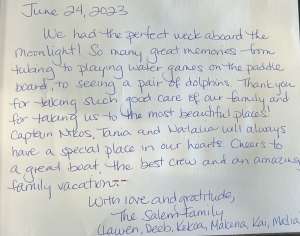 June 24, 2023
We had the perfect week aboard the
Moonlight! So many great memories from
tubing to playing water games on the paddle
board, to seeing a pair of dolphins. Thank you
for taking such good care of our family and
for taking us to the most beautiful places!
Captain Nikos, Tania and Natalia will always
have a special place in our hearts. Cheers to
a great boat, the best crew and an amazing
family vacation.
With love and gratitude,
The Salem Family
(Lauren, Deeb, Kekoa, Makana, Kai, Malia